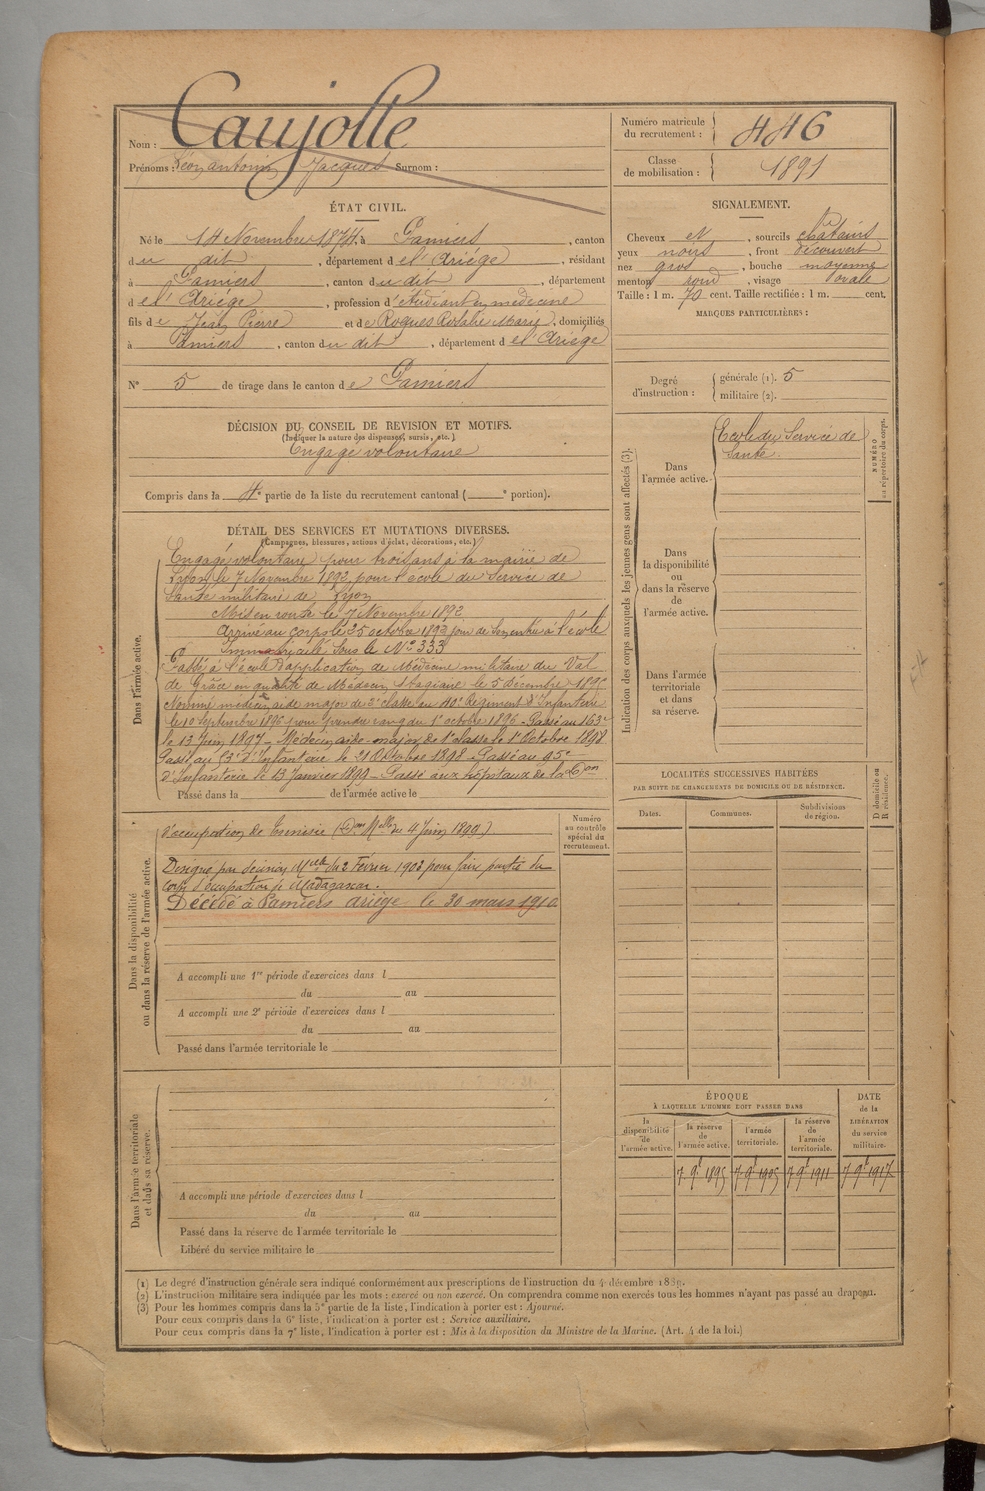 Nom : Caujolle
Prénoms : Léon antonin Jacques Surnom :
Numéro matricule du recrutement : 446
Classe de mobilisation : 1891
ÉTAT CIVIL.
Né le 14 Novembre 1871, à Pamiers, canton
du dit, département de l'Ariége, résidant
à Pamiers, canton du dit, département
de l'Ariége, profession d'étudiant en médecine
fils de Jean Pierre et de Roques Rosalie Marie, domiciliés
à Pamiers, canton du dit, département de l'Ariége
N° 5 de tirage dans le canton de Pamiers
SIGNALEMENT.
Cheveux et, sourcils châtains
yeux noirs, front découvert
nez gros, bouche moyenne
menton rond, visage ovale
Taille : 1 m. 70 cent. Taille rectifiée : 1 m. cent.
MARQUES PARTICULIÈRES :
Degré d'instruction : générale (1). 5
militaire (2).
DÉCISION DU CONSEIL DE REVISION ET MOTIFS.
(Indiquer la nature des dispenses, sursis, etc.)
Engagé volontaire
Compris dans la 4e partie de la liste du recrutement cantonal ( e portion).
DÉTAIL DES SERVICES ET MUTATIONS DIVERSES.
(Campagnes, blessures, actions d'éclat, décorations, etc.)
Dans l'armée active.
Engagé volontaire pour trois ans à la mairie de
Lyon, le 7 Novembre 1892, pour l'école du Service de
Santé militaire de Lyon
Mis en route le 7 Novembre 1892
Arrivé au corps le 25 octobre 1892 jour de son entrée à l'école
Immatriculé sous le N° 333
Passé à l'école d'application de Médecine militaire du Val
de Grâce en qualité de Médecin Stagiaire le 5 Décembre 1895
Nommé médecin aide major de 2e classe au 40e Régiment d'Infanterie
le 10 Septembre 1896 pour prendre rang du 1er octobre 1896 - Passé au 163e
le 13 Juin 1897 - Médecin aide-major de 1e classe le 1er Octobre 1898
Passé au 53e d'Infanterie le 21 Octobre 1898 - Passé au 95e
d'Infanterie le 13 Janvier 1899 - Passé aux hôpitaux de la Don
Passé dans la de l'armée active le
Dans la disponibilité
ou dans la réserve de l'armée active.
d'occupation de Tunisie (Don Mlle du 4 Juin 1899)
Désigné par décision Mlle du 2 Février 1903 pour faire partie du
corps d'occupation de Madagascar.
Décédé à Pamiers Ariége le 30 mars 1910
Numéro
au contrôle
spécial du
recrutement.
A accompli une 1re période d'exercices dans l
du au
A accompli une 2e période d'exercices dans l
du au
Passé dans l'armée territoriale le
Dans l'armée territoriale
et dans sa réserve.
A accompli une période d'exercices dans l
du au
Passé dans la réserve de l'armée territoriale le
Libéré du service militaire le
Indication des corps auxquels les jeunes gens sont affectés (3).
Dans
l'armée active.
Ecole du Service de
Santé.
NUMÉRO
au répertoire du corps.
Dans
la disponibilité
ou
dans la réserve
de
l'armée active.
Dans l'armée
territoriale
et dans
sa réserve.
LOCALITÉS SUCCESSIVES HABITÉES
PAR SUITE DE CHANGEMENTS DE DOMICILE OU DE RÉSIDENCE.
Dates.
Communes.
Subdivisions
de région.
D domicile ou
R résidence.
ÉPOQUE
À LAQUELLE L'HOMME DOIT PASSER DANS
la
disponibilité
de
l'armée active.
la réserve
de
l'armée active.
l'armée
territoriale.
la réserve
de
l'armée
territoriale.
DATE
de la
LIBÉRATION
du service
militaire.
7 9bre 1895
7 9bre 1905
7 9bre 1911
7 9bre 1917
(1) Le degré d'instruction générale sera indiqué conformément aux prescriptions de l'instruction du 4 décembre 1889.
(2) L'instruction militaire sera indiquée par les mots : exercé ou non exercé. On comprendra comme non exercés tous les hommes n'ayant pas passé au drapeau.
(3) Pour les hommes compris dans la 5e partie de la liste, l'indication à porter est : Ajourné.
Pour ceux compris dans la 6e liste, l'indication à porter est : Service auxiliaire.
Pour ceux compris dans la 7e liste, l'indication à porter est : Mis à la disposition du Ministre de la Marine. (Art. 4 de la loi.)